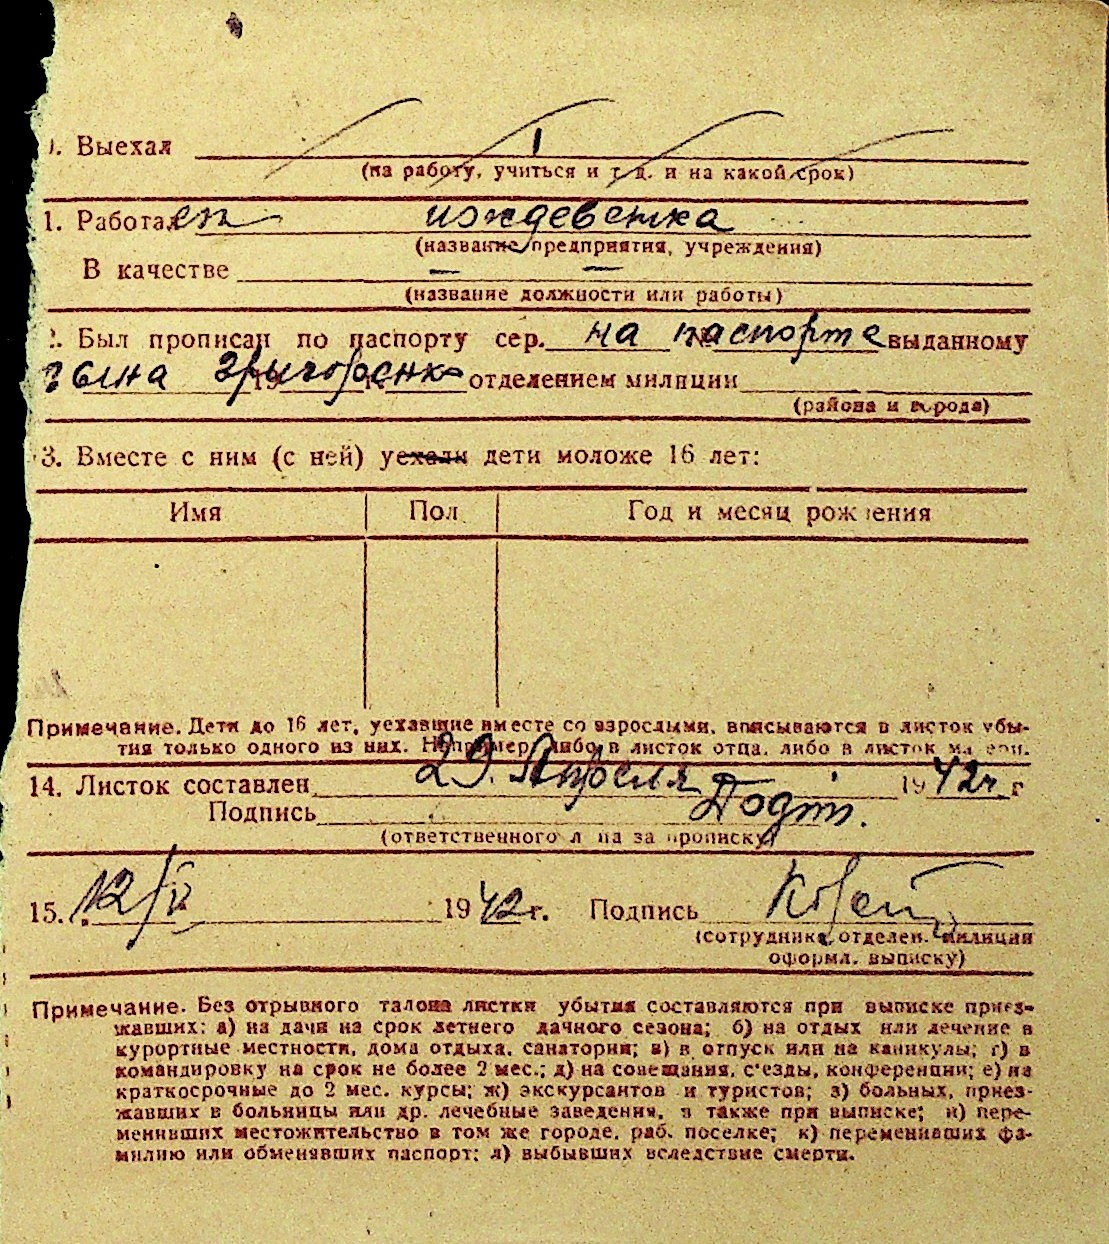 0. Выехал
(на работу, учиться и т. д. и на какой срок)
1. Работал иждевенка
(название предприятия, учреждения)
В качестве — —
(название должности или работы)
2. Был прописан по паспорту сер. на № паспорте выданному
сына 19 отделением милиции
(района и города)
3. Вместе с ним (с ней) уехали дети моложе 16 лет:
Имя Пол Год и месяц рождения
Примечание. Дети до 16 лет, уехавшие вместе со взрослыми, вписываются в листок убы-
тия только одного из них. Например, либо в листок отца, либо в листок матери.
14. Листок составлен 29. Апреля 1942 г
Подпись
(ответственного лица за прописку)
15. 12/V 1942 г. Подпись
(сотрудника отделен. милиции
оформл. выписку)
Примечание. Без отрывного талона листки убытия составляются при выписке приез-
жавших: а) на дачи на срок летнего дачного сезона; б) на отдых или лечение в
курортные местности, дома отдыха, санатории; в) в отпуск или на каникулы; г) в
командировку на срок не более 2 мес.; д) на совещания, с'езды, конференции; е) на
краткосрочные до 2 мес. курсы; ж) экскурсантов и туристов; з) больных, приез-
жавших в больницы или др. лечебные заведения, а также при выписке; и) пере-
менивших местожительство в том же городе, раб. поселке; к) переменивших фа-
милию или обменявших паспорт; л) выбывших вследствие смерти.